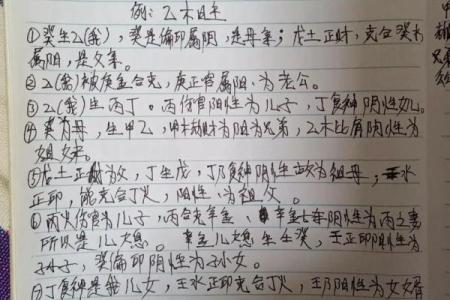 例：乙木日主
①癸生乙(我)，癸是偏印属阴，是母亲；戊土正财，克合癸为
属阳，是父亲。
②乙(我)被庚金合克，庚正官属阳，为老公。
③乙(我)生丙丁。丙伤官阳性为儿子，丁食神阴性女儿。
④癸为母，生甲乙，甲木劫财为阳为兄弟，乙木比肩阴性为
姐妹。
⑤戊土正财为父，丁生戊，丁食神阴性故为祖母，壬水
正印，能克合丁火，阳性，为祖父。
⑥丙火伤官为儿子，丙合克辛金，辛金七杀阴性为丙之妻
所以是儿大媳。辛金儿媳生壬癸，壬正印阳性为
孙子，癸偏印阴性为孙女。
⑦丁食神是我儿女，壬水正印克合丁火，壬阳性为女婿